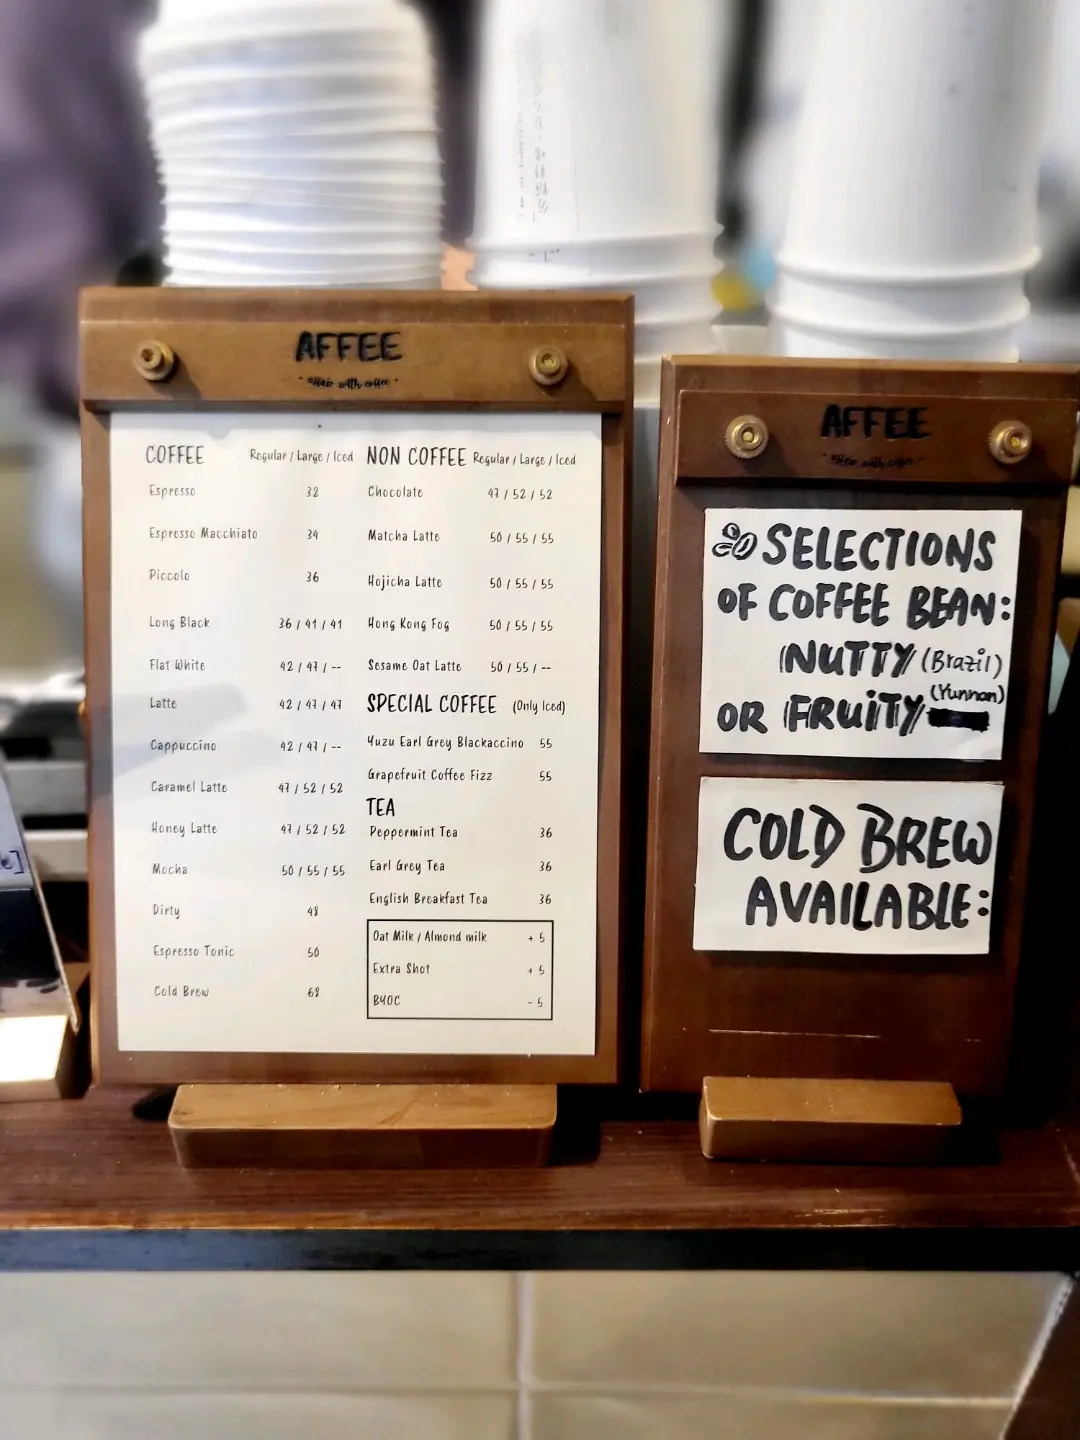 AFFEE
"Affair with coffee"
COFFEE Regular / Large / Iced
Espresso 32
Espresso Macchiato 34
Piccolo 36
Long Black 36 / 41 / 41
Flat White 42 / 47 / --
Latte 42 / 47 / 47
Cappuccino 42 / 47 / --
Caramel Latte 47 / 52 / 52
Honey Latte 47 / 52 / 52
Mocha 50 / 55 / 55
Dirty 48
Espresso Tonic 50
Cold Brew 68
NON COFFEE Regular / Large / Iced
Chocolate 47 / 52 / 52
Matcha Latte 50 / 55 / 55
Hojicha Latte 50 / 55 / 55
Hong Kong Fog 50 / 55 / 55
Sesame Oat Latte 50 / 55 / --
SPECIAL COFFEE (Only Iced)
Yuzu Earl Grey Blackaccino 55
Grapefruit Coffee Fizz 55
TEA
Peppermint Tea 36
Earl Grey Tea 36
English Breakfast Tea 36
Oat Milk / Almond milk + 5
Extra Shot + 5
BYOC - 5
AFFEE
"Affair with coffee"
SELECTIONS
OF COFFEE BEAN:
NUTTY (Brazil)
(Yunnan)
OR FRUITY
COLD BREW
AVAILABLE: